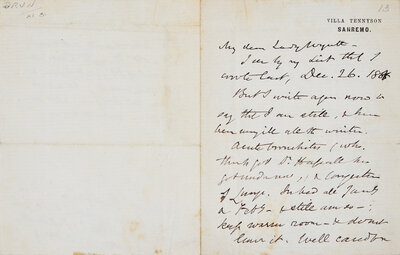 VILLA TENNYSON
SANREMO.
My dear Lady Wyatt —
I see by my List that I
wrote last, Dec. 26. 18
But I write again now to
say that I am still, & have
been very ill all the winter.
Acute bronchitis (who.
thank God Dr. Hassall has
got under now,) & congestion
of Lungs. In bed all Jany
& Feby — & still am so —;
keep warm room — & do not
leave it. Well cared for